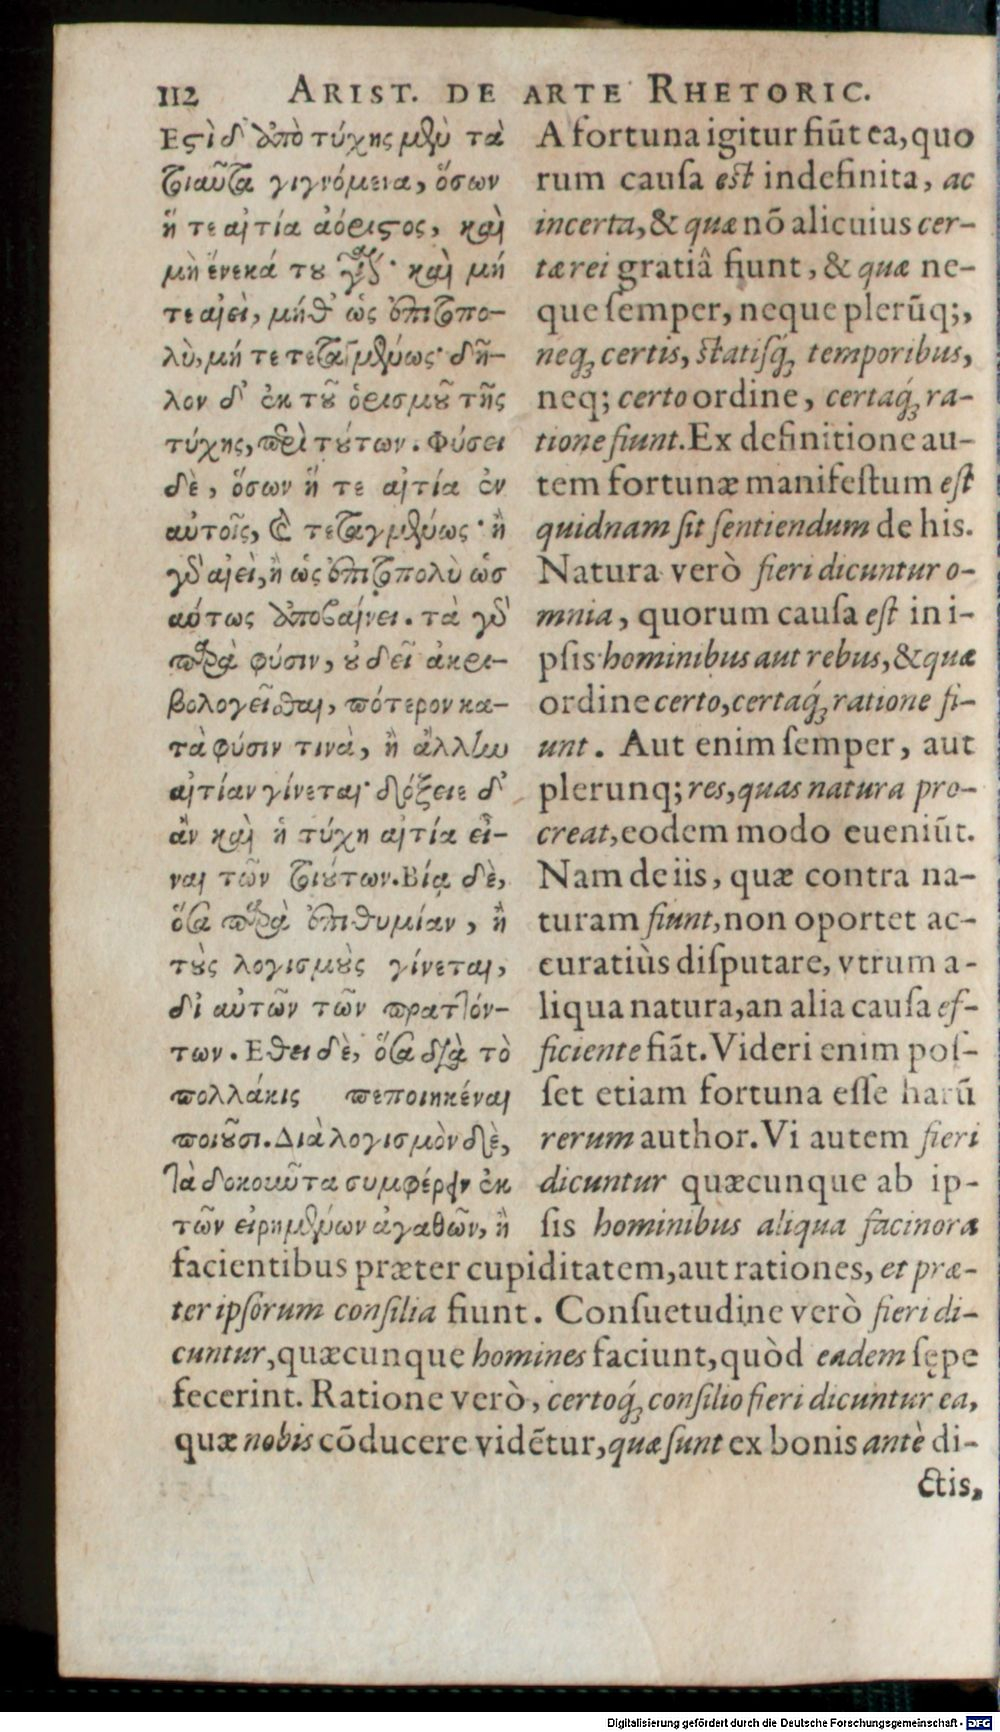 112 ARIST. DE ARTE RHETORIC.
Εϛὶ δ᾽ ἀπὸ τύχης μὲν τὰ
τοιαῦτα γιγνόμενα, ὅσων
ἥ τε αἰτία ἀόριϛος, καὶ
μὴ ἕνεκά του γίνεται· καὶ μή
τε αἰεὶ, μήθ᾽ ὡς ἐπιτοπο-
λὺ, μή τε τεταγμένως· δῆ-
λον δ᾽ ἐκ τοῦ ὁρισμοῦ τῆς
τύχης, περὶ τούτων. Φύσει
δὲ, ὅσων ἥ τε αἰτία ἐν
αὐτοῖς, καὶ τεταγμένως· ἢ
γὰρ αἰεὶ, ἢ ὡς ἐπιτοπολὺ ὡσ
αύτως ἀποβαίνει. τὰ γὰρ
παρὰ φύσιν, οὐ δεῖ ἀκρι-
βολογεῖσθαι, πότερον κα-
τὰ φύσιν τινὰ, ἢ ἄλλην
αἰτίαν γίνεται· δόξειε δ᾽
ἂν καὶ ἡ τύχη αἰτία εἶ-
ναι τῶν τοιούτων. Βίᾳ δὲ,
ὅσα παρὰ ἐπιθυμίαν, ἢ
τοὺς λογισμοὺς γίνεται,
δι αὐτῶν τῶν πραττόν-
των. Εθει δὲ, ὅσα διὰ τὸ
πολλάκις πεποιηκέναι
ποιοῦσι. Διὰ λογισμὸν δὲ,
τὰ δοκοῦντα συμφέρειν ἐκ
τῶν εἰρημένων ἀγαθῶν, ἢ
A fortuna igitur fiūt ea, quo
rum cauſa eſt indefinita, ac
incerta, & quæ nō alicuius cer-
tæ rei gratiâ fiunt, & quæ ne-
que ſemper, neque plerūq;,
neq; certis, ſtatiſq; temporibus,
neq; certo ordine, certaq́; ra-
tione fiunt. Ex definitione au-
tem fortunæ manifeſtum eſt
quidnam ſit ſentiendum de his.
Natura verò fieri dicuntur o-
mnia, quorum cauſa eſt in i-
pſis hominibus aut rebus, & quæ
ordine certo, certaq́; ratione fi-
unt. Aut enim ſemper, aut
plerunq; res, quas natura pro-
creat, eodem modo eueniūt.
Nam de iis, quæ contra na-
turam fiunt, non oportet ac-
curatiùs diſputare, vtrum a-
liqua natura, an alia cauſa ef-
ficiente fiāt. Videri enim poſ-
ſet etiam fortuna eſſe harū
rerum author. Vi autem fieri
dicuntur quæcunque ab ip-
ſis hominibus aliqua facinora
facientibus præter cupiditatem, aut rationes, et præ-
ter ipſorum conſilia fiunt. Conſuetudine verò fieri di-
cuntur, quæcunque homines faciunt, quòd eadem ſępe
fecerint. Ratione verò, certoq́; conſilio fieri dicuntur ea,
quæ nobis cōducere vidētur, quæ ſunt ex bonis antè di-
ctis,
Digitalisierung gefördert durch die Deutsche Forschungsgemeinschaft - DFG